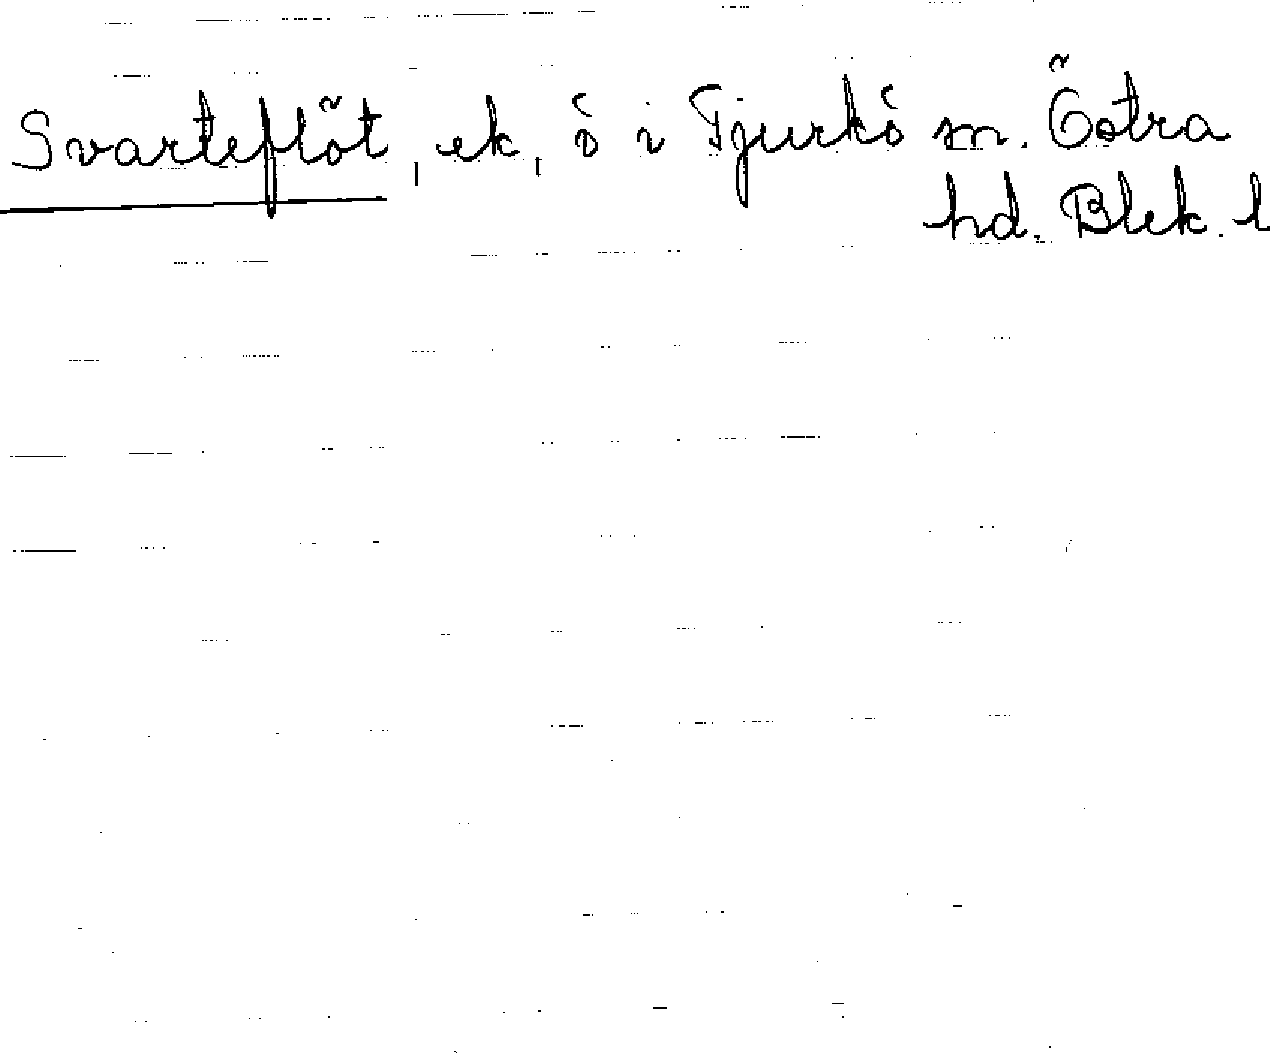 Svarteflöt, ek, ö i Tjurkö sn. Östra
hd. Blek. l